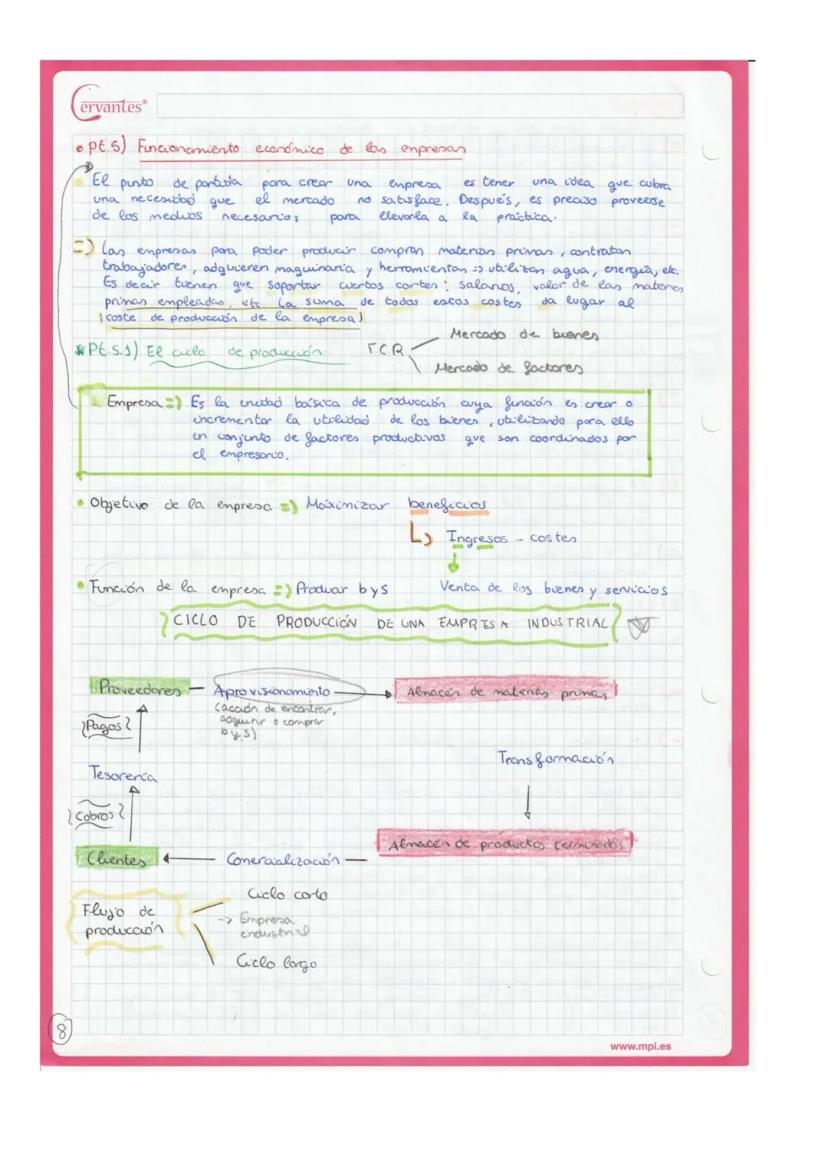 Cervantes®
• Pt.5) Funcionamiento económico de las empresas
El punto de partida para crear una empresa es tener una idea que cubra
una necesidad que el mercado no satisface. Después, es preciso proveerse
de los medios necesarios para llevarla a la práctica.
=) Las empresas para poder producir compran materias primas, contratan
trabajadores, adquieren maquinaria y herramientas => utilizan agua, energía, etc.
Es decir tienen que soportar ciertos costes: salarios, valor de las materias
primas empleadas, etc La suma de todos estos costes da lugar al
|coste de producción de la empresa|
* Pt.5.1) El ciclo de producción F.C.R Mercado de bienes
Mercado de factores
Empresa =) Es la unidad básica de producción cuya función es crear o
incrementar la utilidad de los bienes, utilizando para ello
un conjunto de factores productivos que son coordinados por
el empresario.
• Objetivo de la empresa =) Maximizar beneficios
Ingresos - costes
• Función de la empresa =) Producir b y S Venta de los bienes y servicios
CICLO DE PRODUCCIÓN DE UNA EMPRESA INDUSTRIAL
Proveedores — Aprovisionamiento → Almacén de materias primas
(acción de encontrar,
adquirir o comprar
b y S)
Pagos
Transformación
Tesorería
Cobros
Almacén de productos terminados
Clientes ← Comercialización —
Ciclo corto
Flujo de
producción
-> Empresa
industrial
Ciclo largo
8
www.mpi.es